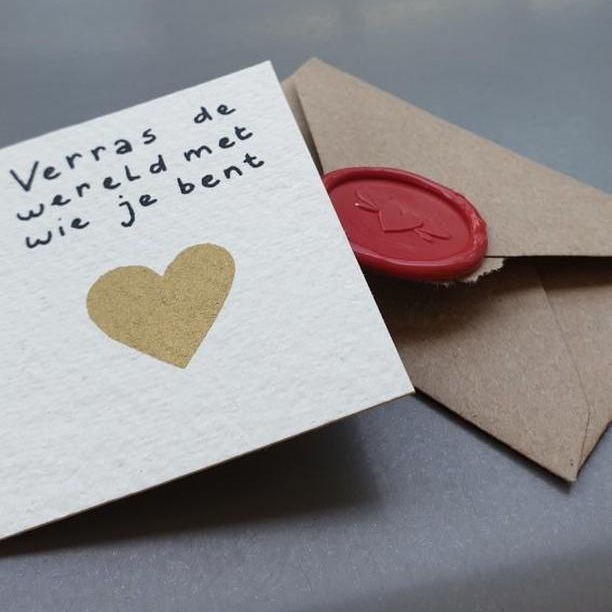 Verras de
wereld met
wie je bent